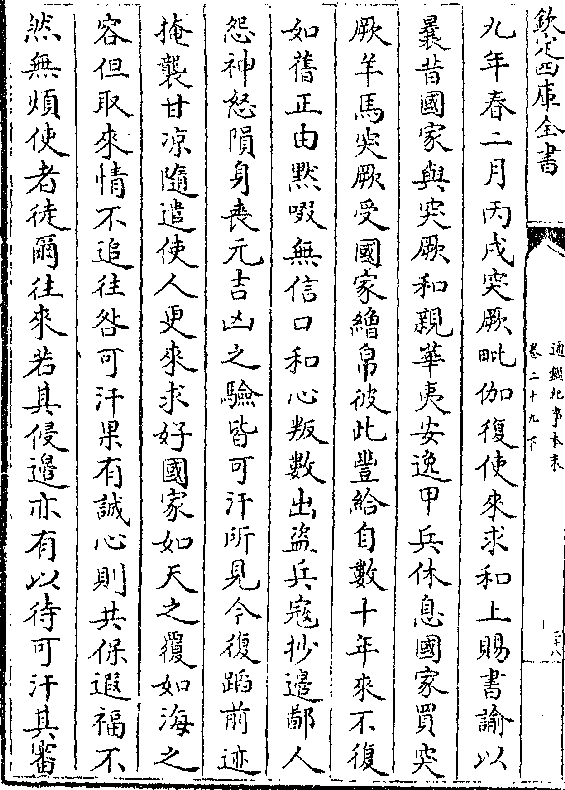 欽定四庫全書
通鑑紀事本末
卷二十九下
九年春二月丙戌突厥毗伽復使來求和上賜書諭以
曩昔國家與突厥和親華夷安逸甲兵休息國家買突
厥羊馬突厥受國家繒帛彼此豐給自數十年來不復
如舊正由黙啜無信口和心叛數出盜兵寇抄邊鄙人
怨神怒隕身喪元吉凶之驗皆可汗所見今復蹈前迹
掩襲甘凉隨遣使人更來求好國家如天之覆如海之
容但取來情不追往咎可汗果有誠心則共保遐福不
然無煩使者徒爾往來若其侵邊亦有以待可汗其審